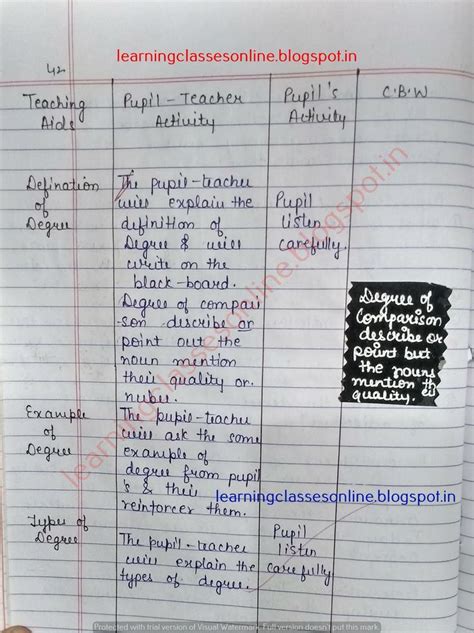 learningclassesonline.blogspot.in
42
Teaching
Aids
Pupil - Teacher
Activity
Pupil's
Activity
C.B.W
Defination
of
Degree
The pupil-teacher
will explain the
definition of
Degree & will
write on the
black-board.
Degree of compari
-son describe or
point out the
noun mention
their quality or
nuber.
Pupil
listen
carefully.
Degree of
Comparison
describe or
point but
the nouns
mention their
quality.
Example
of
Degree
The pupil-teacher
will ask the some
example of
degree from pupil
's & their
reinforcer them.
learningclassesonline.blogspot.in
Types of
Degree
The pupil-teacher
will explain the
types of degree.
Pupil
listen
carefully
learningclassesonline.blogspot.in
Protected with trial version of Visual Watermark. Full version doesn't put this mark.